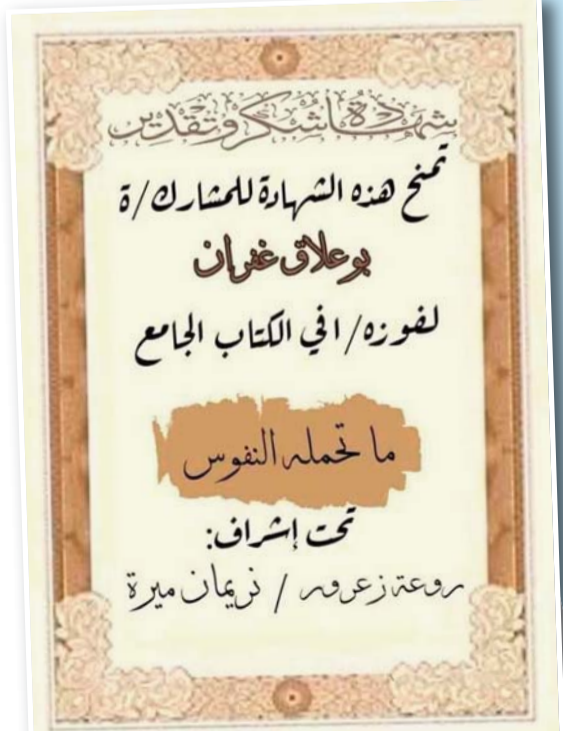 شهادة شكر وتقدير
تمنح هذه الشهادة للمشارك/ة
بوعلاق غفران
لفوزه/ا في الكتاب الجامع
ما تحمله النفوس
تحت إشراف:
روعة زعرور / نريمان ميرة